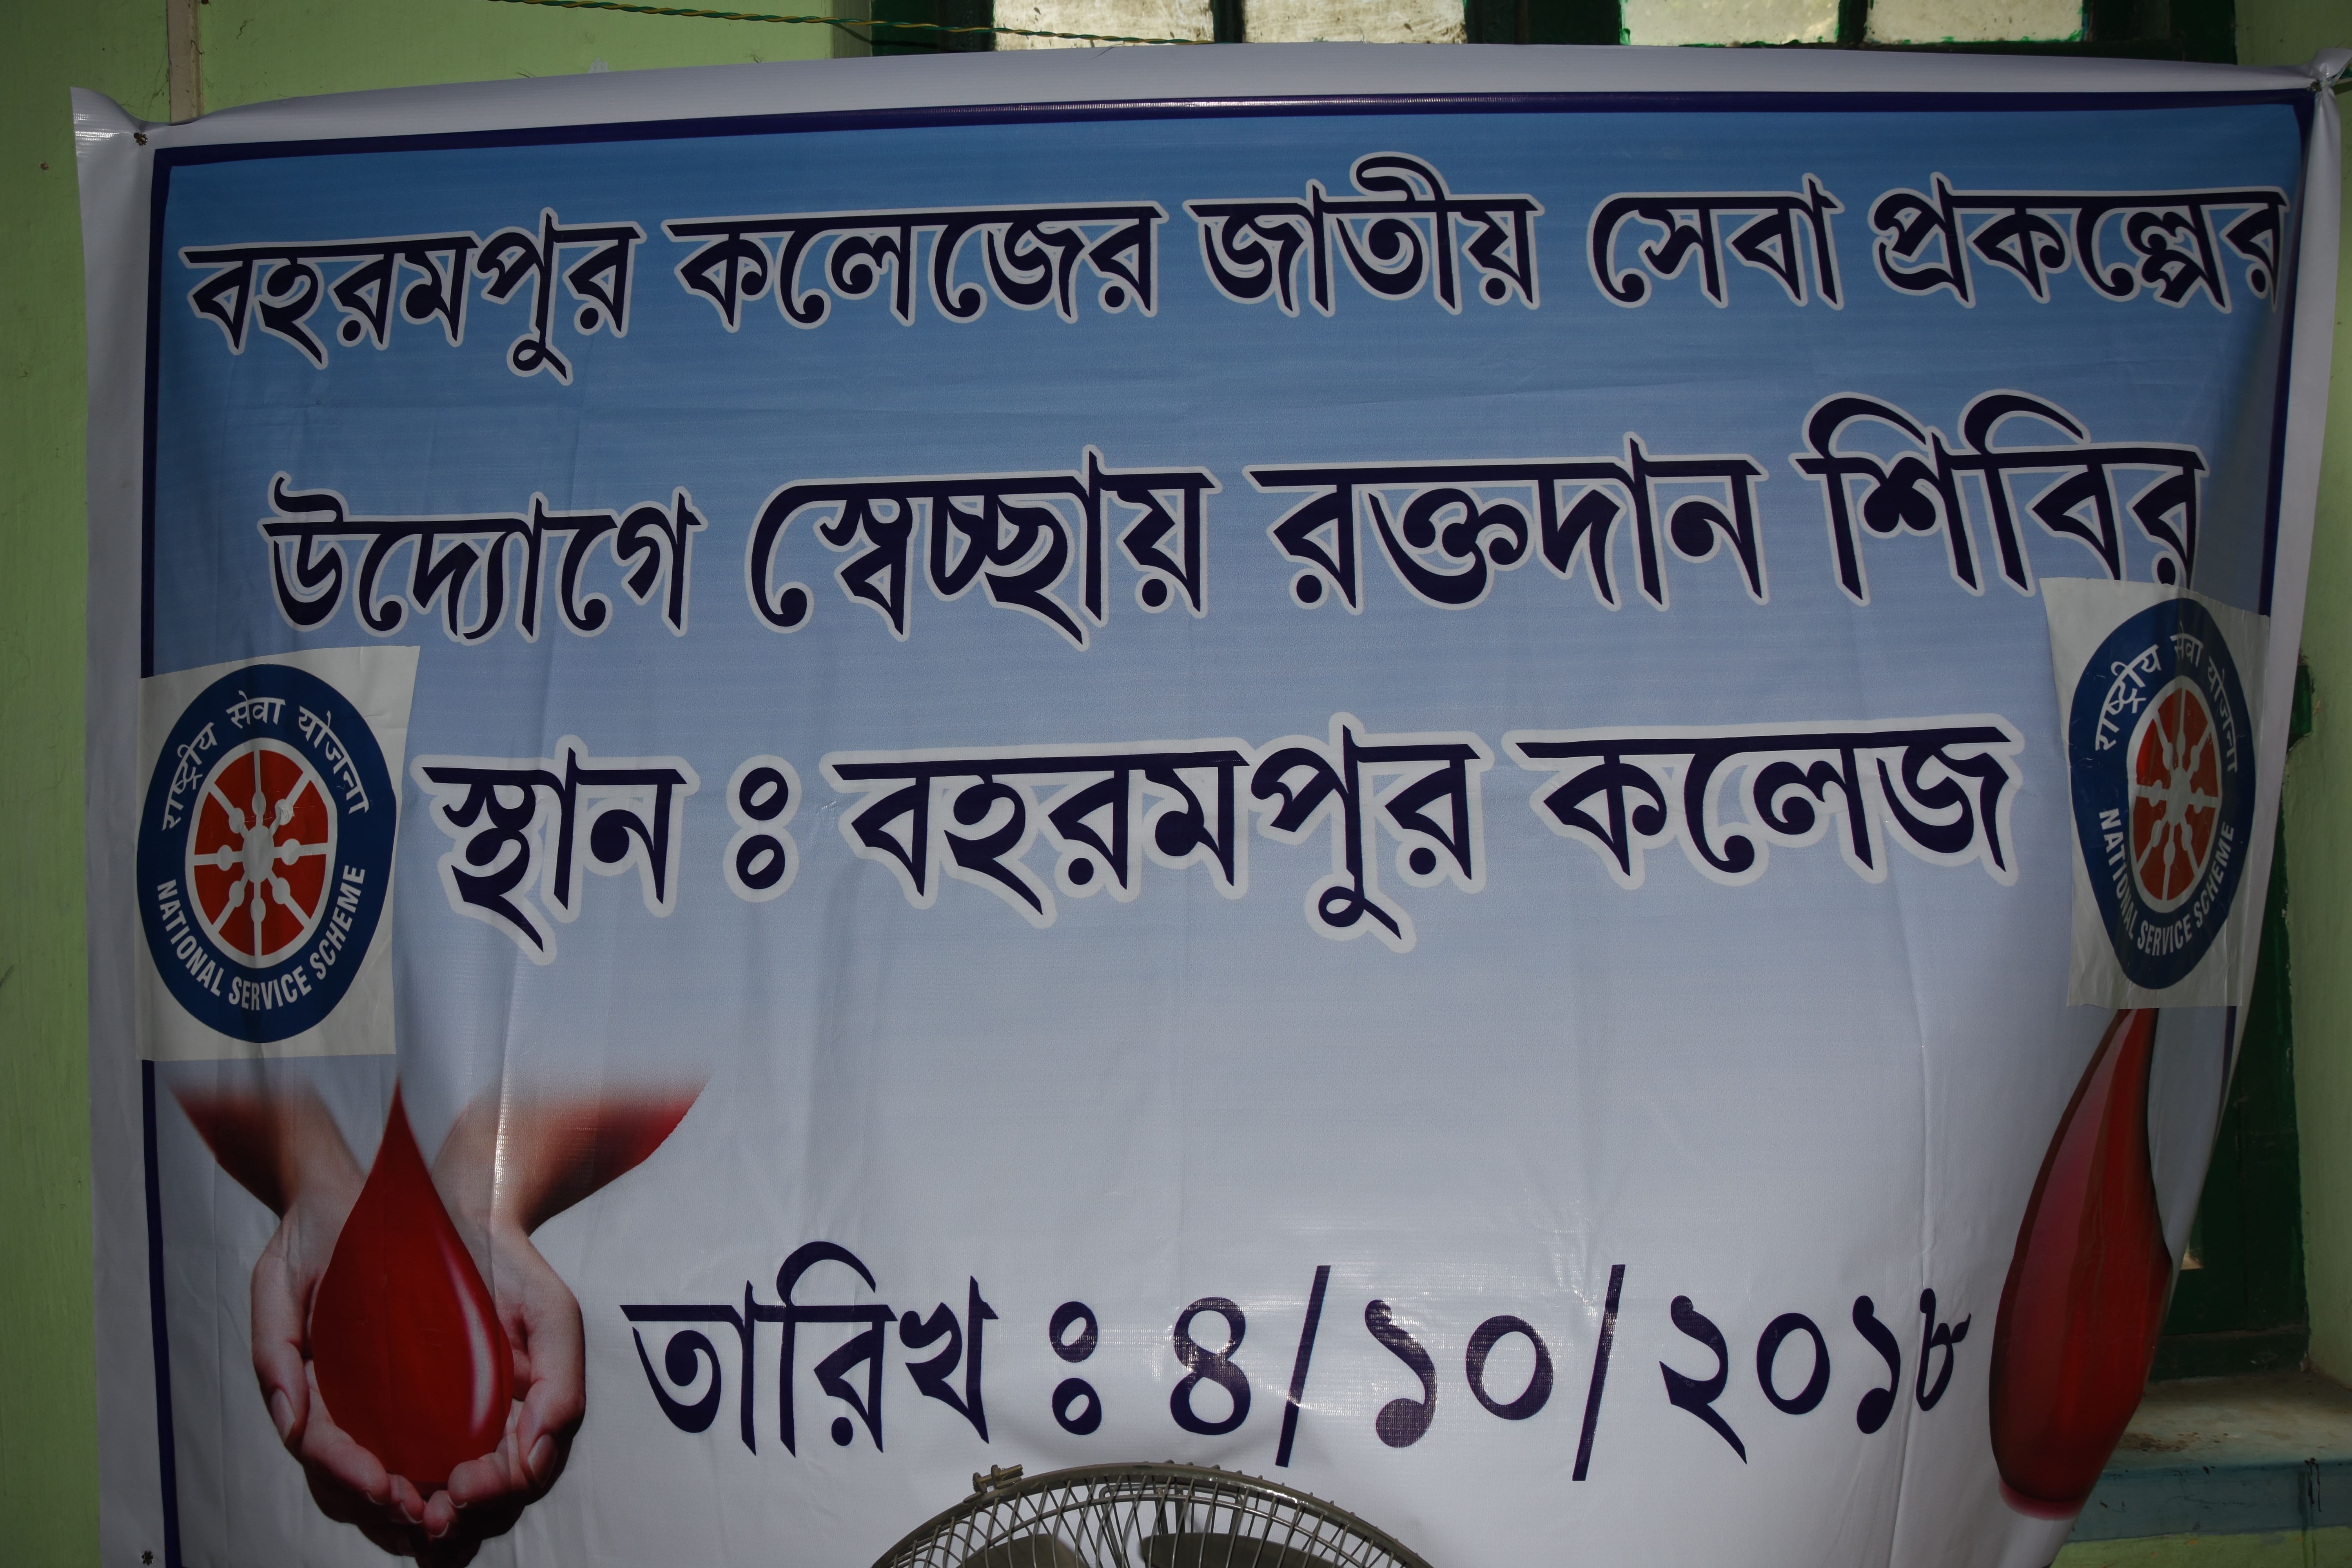 বহরমপুর কলেজের জাতীয় সেবা প্রকল্পের
উদ্যোগে স্বেচ্ছায় রক্তদান শিবির
राष्ट्रीय सेवा योजना
NATIONAL SERVICE SCHEME
স্থান ঃ বহরমপুর কলেজ
राष्ट्रीय सेवा योजना
NATIONAL SERVICE SCHEME
তারিখ ঃ ৪/১০/২০১৮